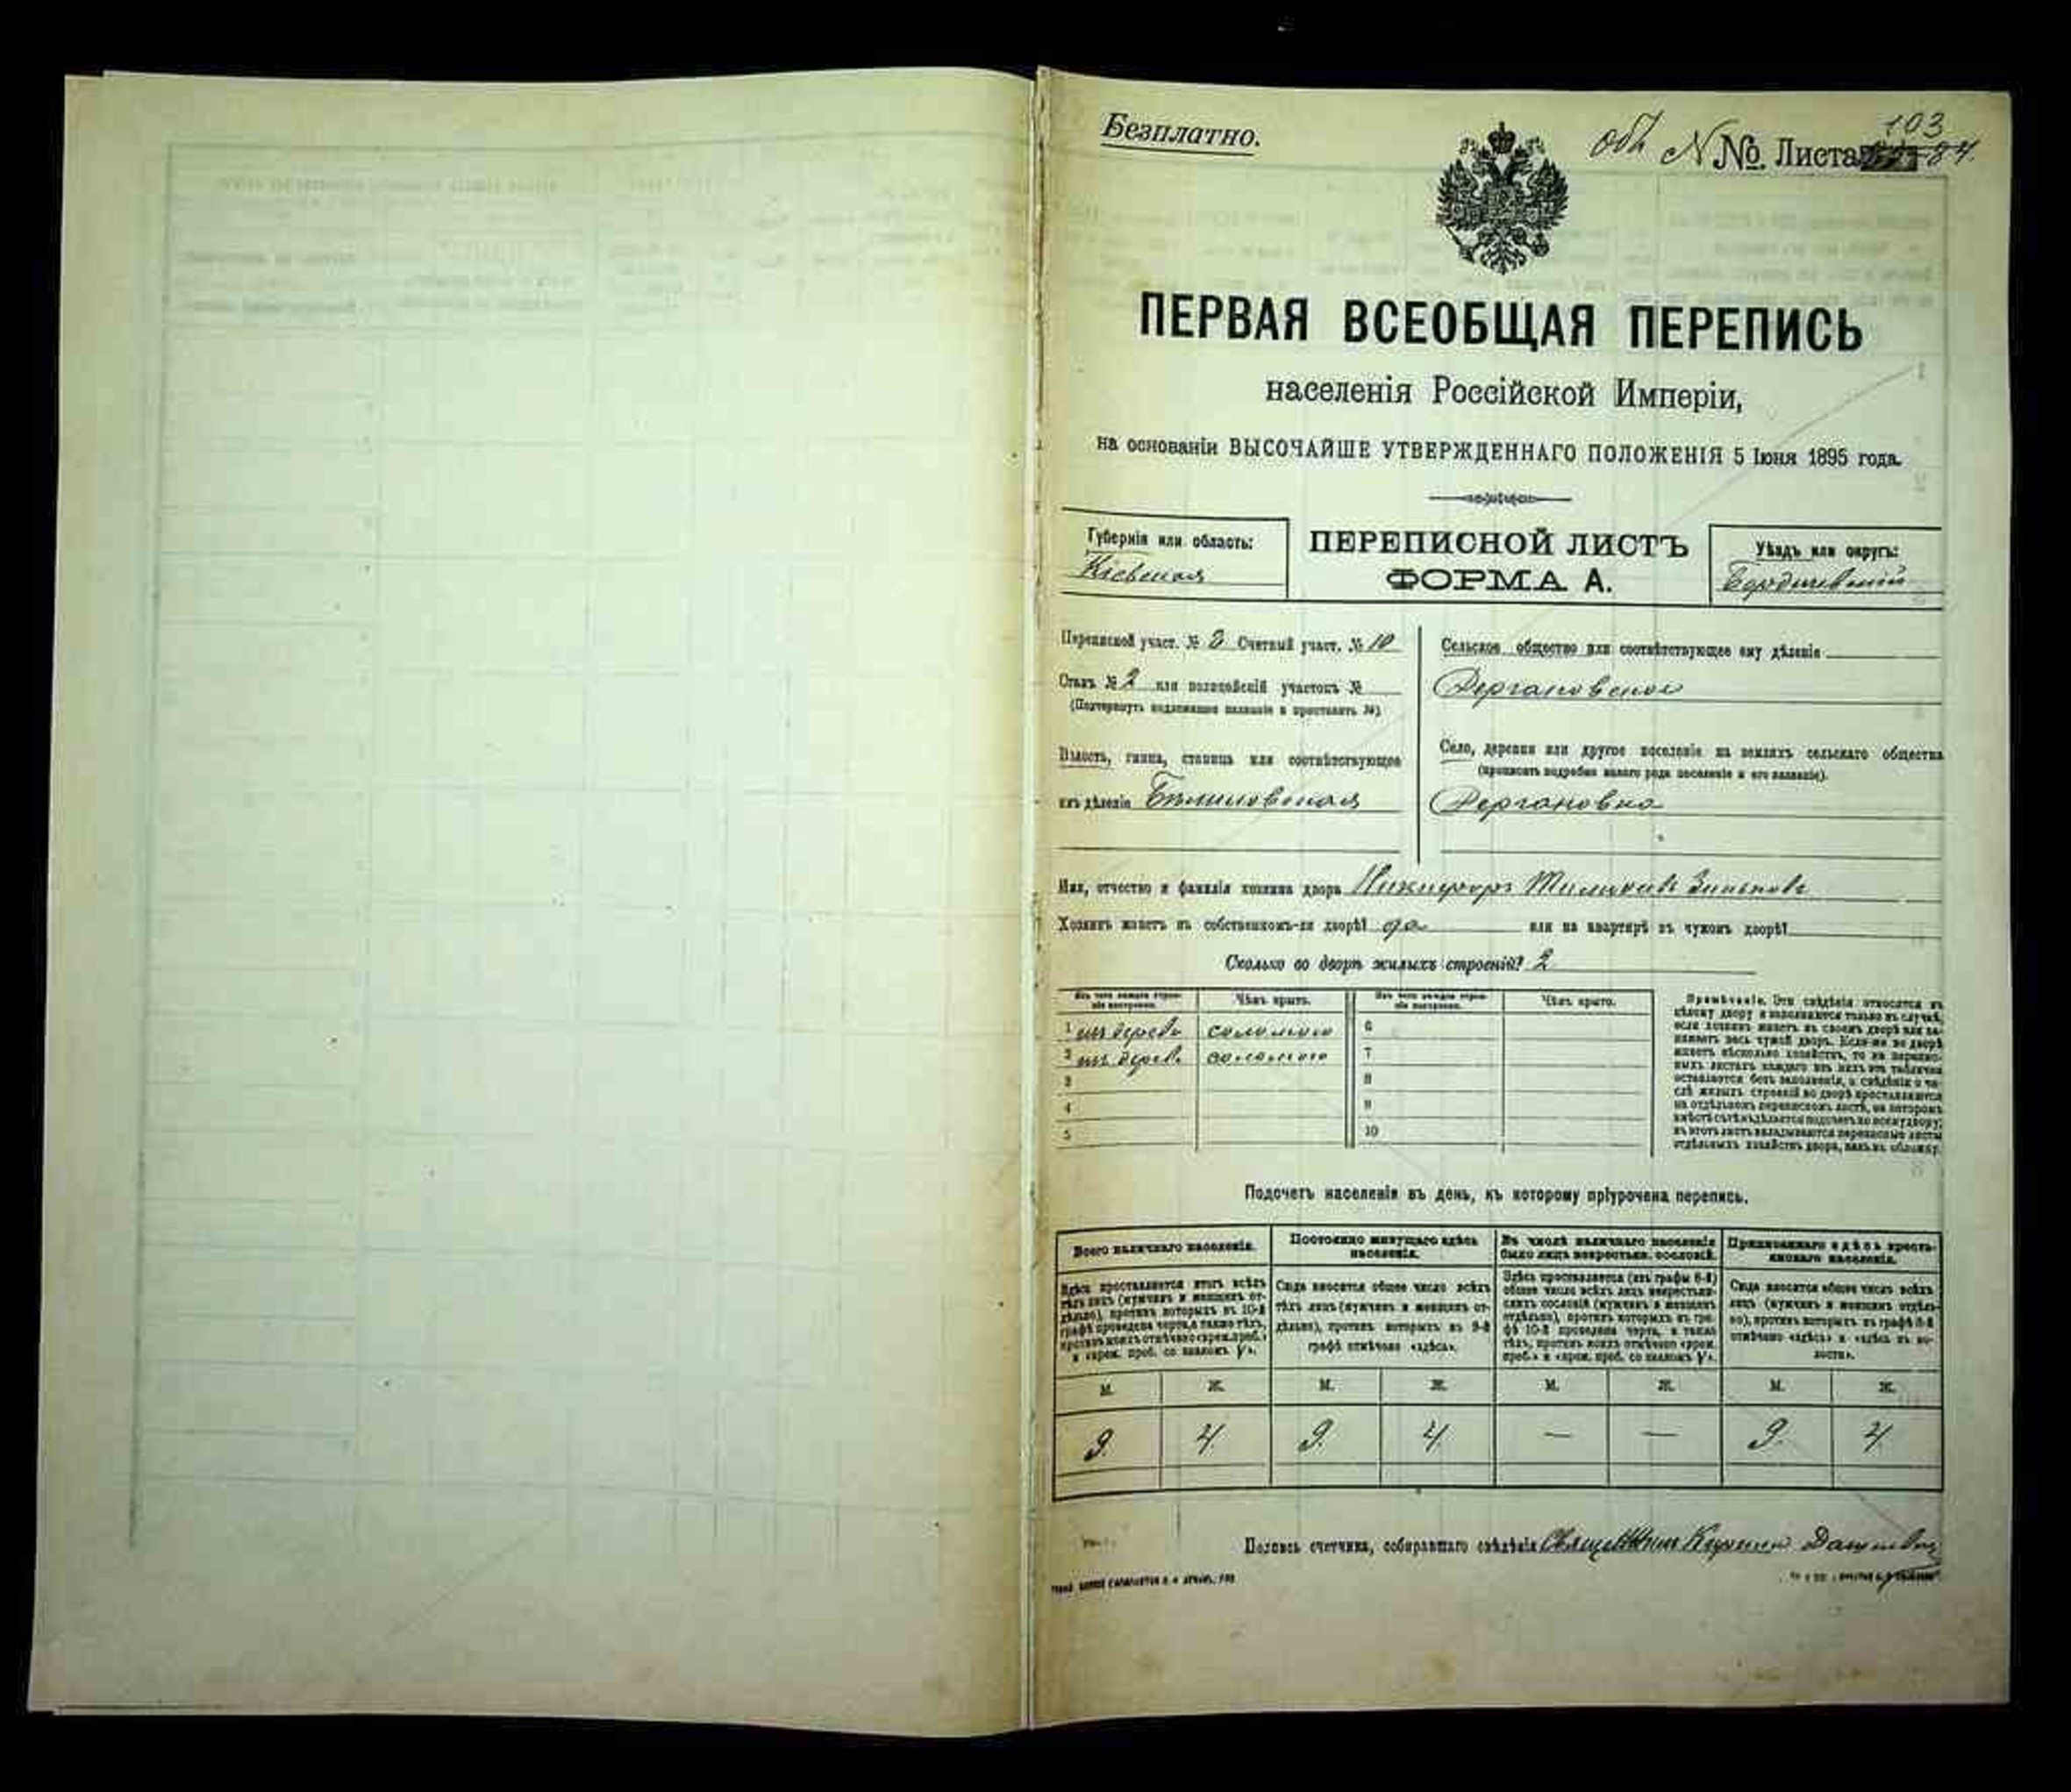 Безплатно.
103
№ Листа 84.
ПЕРВАЯ ВСЕОБЩАЯ ПЕРЕПИСЬ
населенія Россійской Имперіи,
на основаніи ВЫСОЧАЙШЕ УТВЕРЖДЕННАГО ПОЛОЖЕНІЯ 5 Іюня 1895 года.
Губернія или область:
Кіевская
ПЕРЕПИСНОЙ ЛИСТЪ
ФОРМА А.
Уѣздъ или округъ:
Бердичевскій
Переписной участ. № Счетный участ. № 10
Станъ № 2 или полицейскій участокъ №
(Подчеркнуть надлежащее названіе и проставить №)
Волость, гмина, станица или соотвѣтствующее
имъ дѣленіе
Сельское общество или соотвѣтствующее ему дѣленіе
Дергановское
Село, деревня или другое поселеніе на земляхъ сельскаго общества
(прописать подробно какого рода поселеніе и его названіе).
Дергановка
Имя, отчество и фамилія хозяина двора Никифоръ
Хозяинъ живетъ въ собственномъ-ли дворѣ? да или на квартирѣ въ чужомъ дворѣ?
Сколько во дворѣ жилыхъ строеній? 2
Изъ чего каждое строеніе построено. Чѣмъ крыто. Изъ чего каждое строеніе построено. Чѣмъ крыто.
1 изъ дерева соломою 6
2 изъ дерев. соломою 7
3 8
4 9
5 10
Примѣчаніе. Эти свѣдѣнія относятся къ
цѣлому двору и заполняются только въ случаѣ,
если хозяинъ живетъ въ своемъ дворѣ или за-
нимаетъ весь чужой дворъ. Если-же во дворѣ
живетъ нѣсколько хозяйствъ, то на перепис-
ныхъ листахъ каждаго изъ нихъ эта табличка
оставляется безъ заполненія, а свѣдѣнія о чи-
слѣ жилыхъ строеній во дворѣ проставляются
на отдѣльномъ переписномъ листѣ, на которомъ
вмѣстѣ съ тѣмъ дѣлается подсчетъ по всему двору;
въ этотъ листъ вкладываются переписные листы
отдѣльныхъ хозяйствъ двора, какъ въ обложку.
Подсчетъ населенія въ день, къ которому пріурочена перепись.
Всего наличнаго населенія.
Здѣсь проставляется итогъ всѣхъ
тѣхъ лицъ (мужчинъ и женщинъ от-
дѣльно), противъ которыхъ въ 10-й
графѣ проведена черта, а также тѣхъ,
противъ коихъ отмѣчено «врем. преб.»
и «врем. преб. со знакомъ V».
Постоянно живущаго здѣсь
населенія.
Сюда вносится общее число всѣхъ
тѣхъ лицъ (мужчинъ и женщинъ от-
дѣльно), противъ которыхъ въ 9-й
графѣ отмѣчено «здѣсь».
Въ числѣ наличнаго населенія
было лицъ некрестьян. сословій.
Здѣсь проставляется (изъ графы 6-й)
общее число всѣхъ лицъ некрестьян-
скихъ сословій (мужчинъ и женщинъ
отдѣльно), противъ которыхъ въ гра-
фѣ 10-й проведена черта, а также
тѣхъ, противъ коихъ отмѣчено «врем.
преб.» и «врем. преб. со знакомъ V».
Приписаннаго здѣсь кресть-
янскаго населенія.
Сюда вносится общее число всѣхъ
лицъ (мужчинъ и женщинъ отдѣль-
но), противъ которыхъ въ графѣ 8-й
отмѣчено «здѣсь» и «здѣсь въ во-
лости».
М. Ж. М. Ж. М. Ж. М. Ж.
9. 4. 9. 4. — — 9. 4.
Подпись счетчика, собиравшаго свѣдѣнія Священникъ